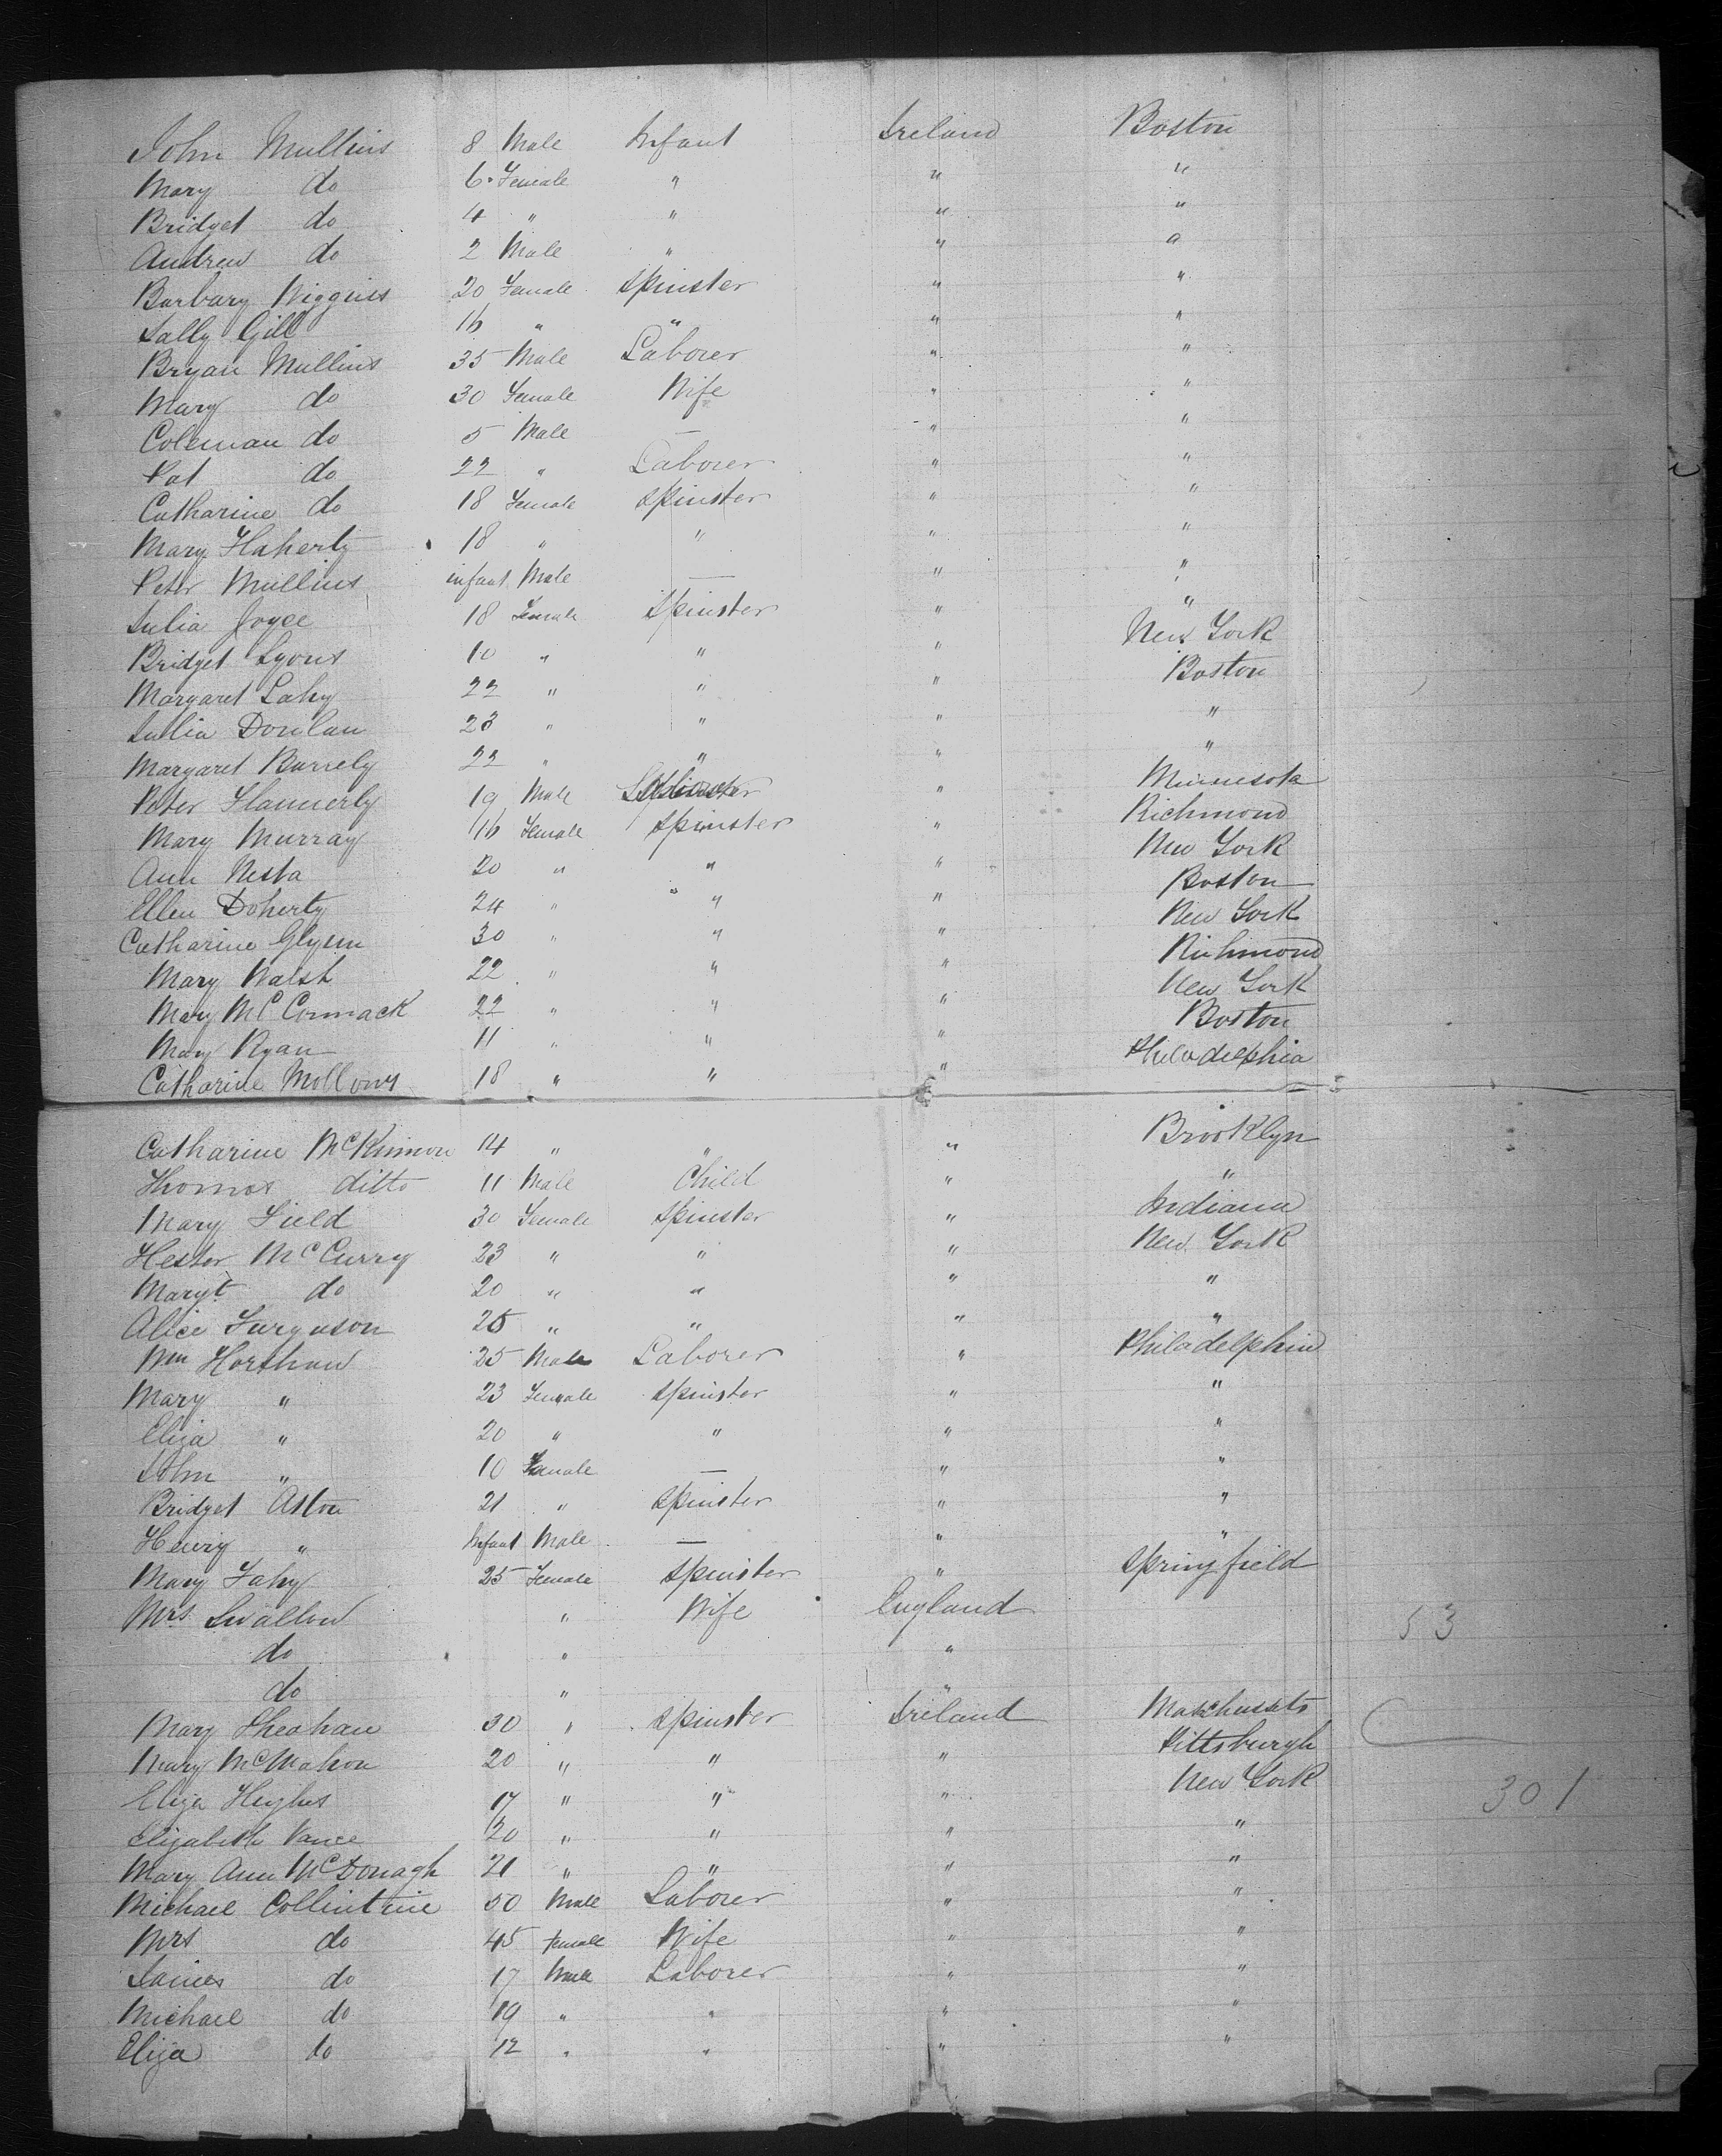 John Mullins 8 Male Infant Ireland Boston
Mary do 6 Female " " "
Bridget do 4 " " " "
Andrew do 2 Male " " "
Barbary Wiggins 20 Female Spinster " "
Sally Gill 16 " " " "
Bryan Mullins 35 Male Laborer " "
Mary do 30 Female Wife " "
Coleman do 5 Male — " "
Pat do 22 " Laborer " "
Catharine do 18 Female Spinster " "
Mary Flaherty 18 " " " "
Peter Mullins infant Male — " "
Julia Joyce 18 Female Spinster " "
Bridget Lyons 10 " " " New York
Margaret Lahy 22 " " " Boston
Julia Donlan 23 " " " "
Margaret Burrely 22 " " " "
Peter Flannerly 19 Male " Minnesota
Mary Murray 16 Female Spinster " Richmond
Ann Nesta 20 " " " New York
Ellen Doherty 24 " " " Boston
Catharine Glynn 30 " " " New York
Mary Walsh 22 " " " Richmond
Mary McCormack 22 " " " New York
Mary Ryan 11 " " " Boston
Catharine Mollony 18 " " " Philadelphia
Catharine McKinnon 14 " " " Brooklyn
Thomas ditto 11 Male Child " "
Mary Field 30 Female Spinster " Indiana
Hester McCurry 23 " " " New York
Maryt do 20 " " " "
Alice Furguson 25 " " " "
Wm Horshan 25 Male Laborer " Philadelphia
Mary " 23 Female Spinster " "
Eliza " 20 " " " "
John " 10 Female — " "
Bridget Aston 21 " Spinster " "
Henry " Infant Male — " "
Mary Fahy 25 Female Spinster " Springfield
Mrs Swallow " Wife England
53
do " "
do " "
Mary Sheahan 30 " Spinster Ireland Maschusets
Mary McMahon 20 " " " Pittsburgh
Eliza Hughes 17 " " " New York
301
Elizabeth Vance 20 " " " "
Mary Ann McDonagh 21 " " " "
Michael Collintine 50 Male Laborer " "
Mrs do 45 Female Wife " "
James do 17 Male Laborer " "
Michael do 19 " " " "
Eliza do 12 " " " "